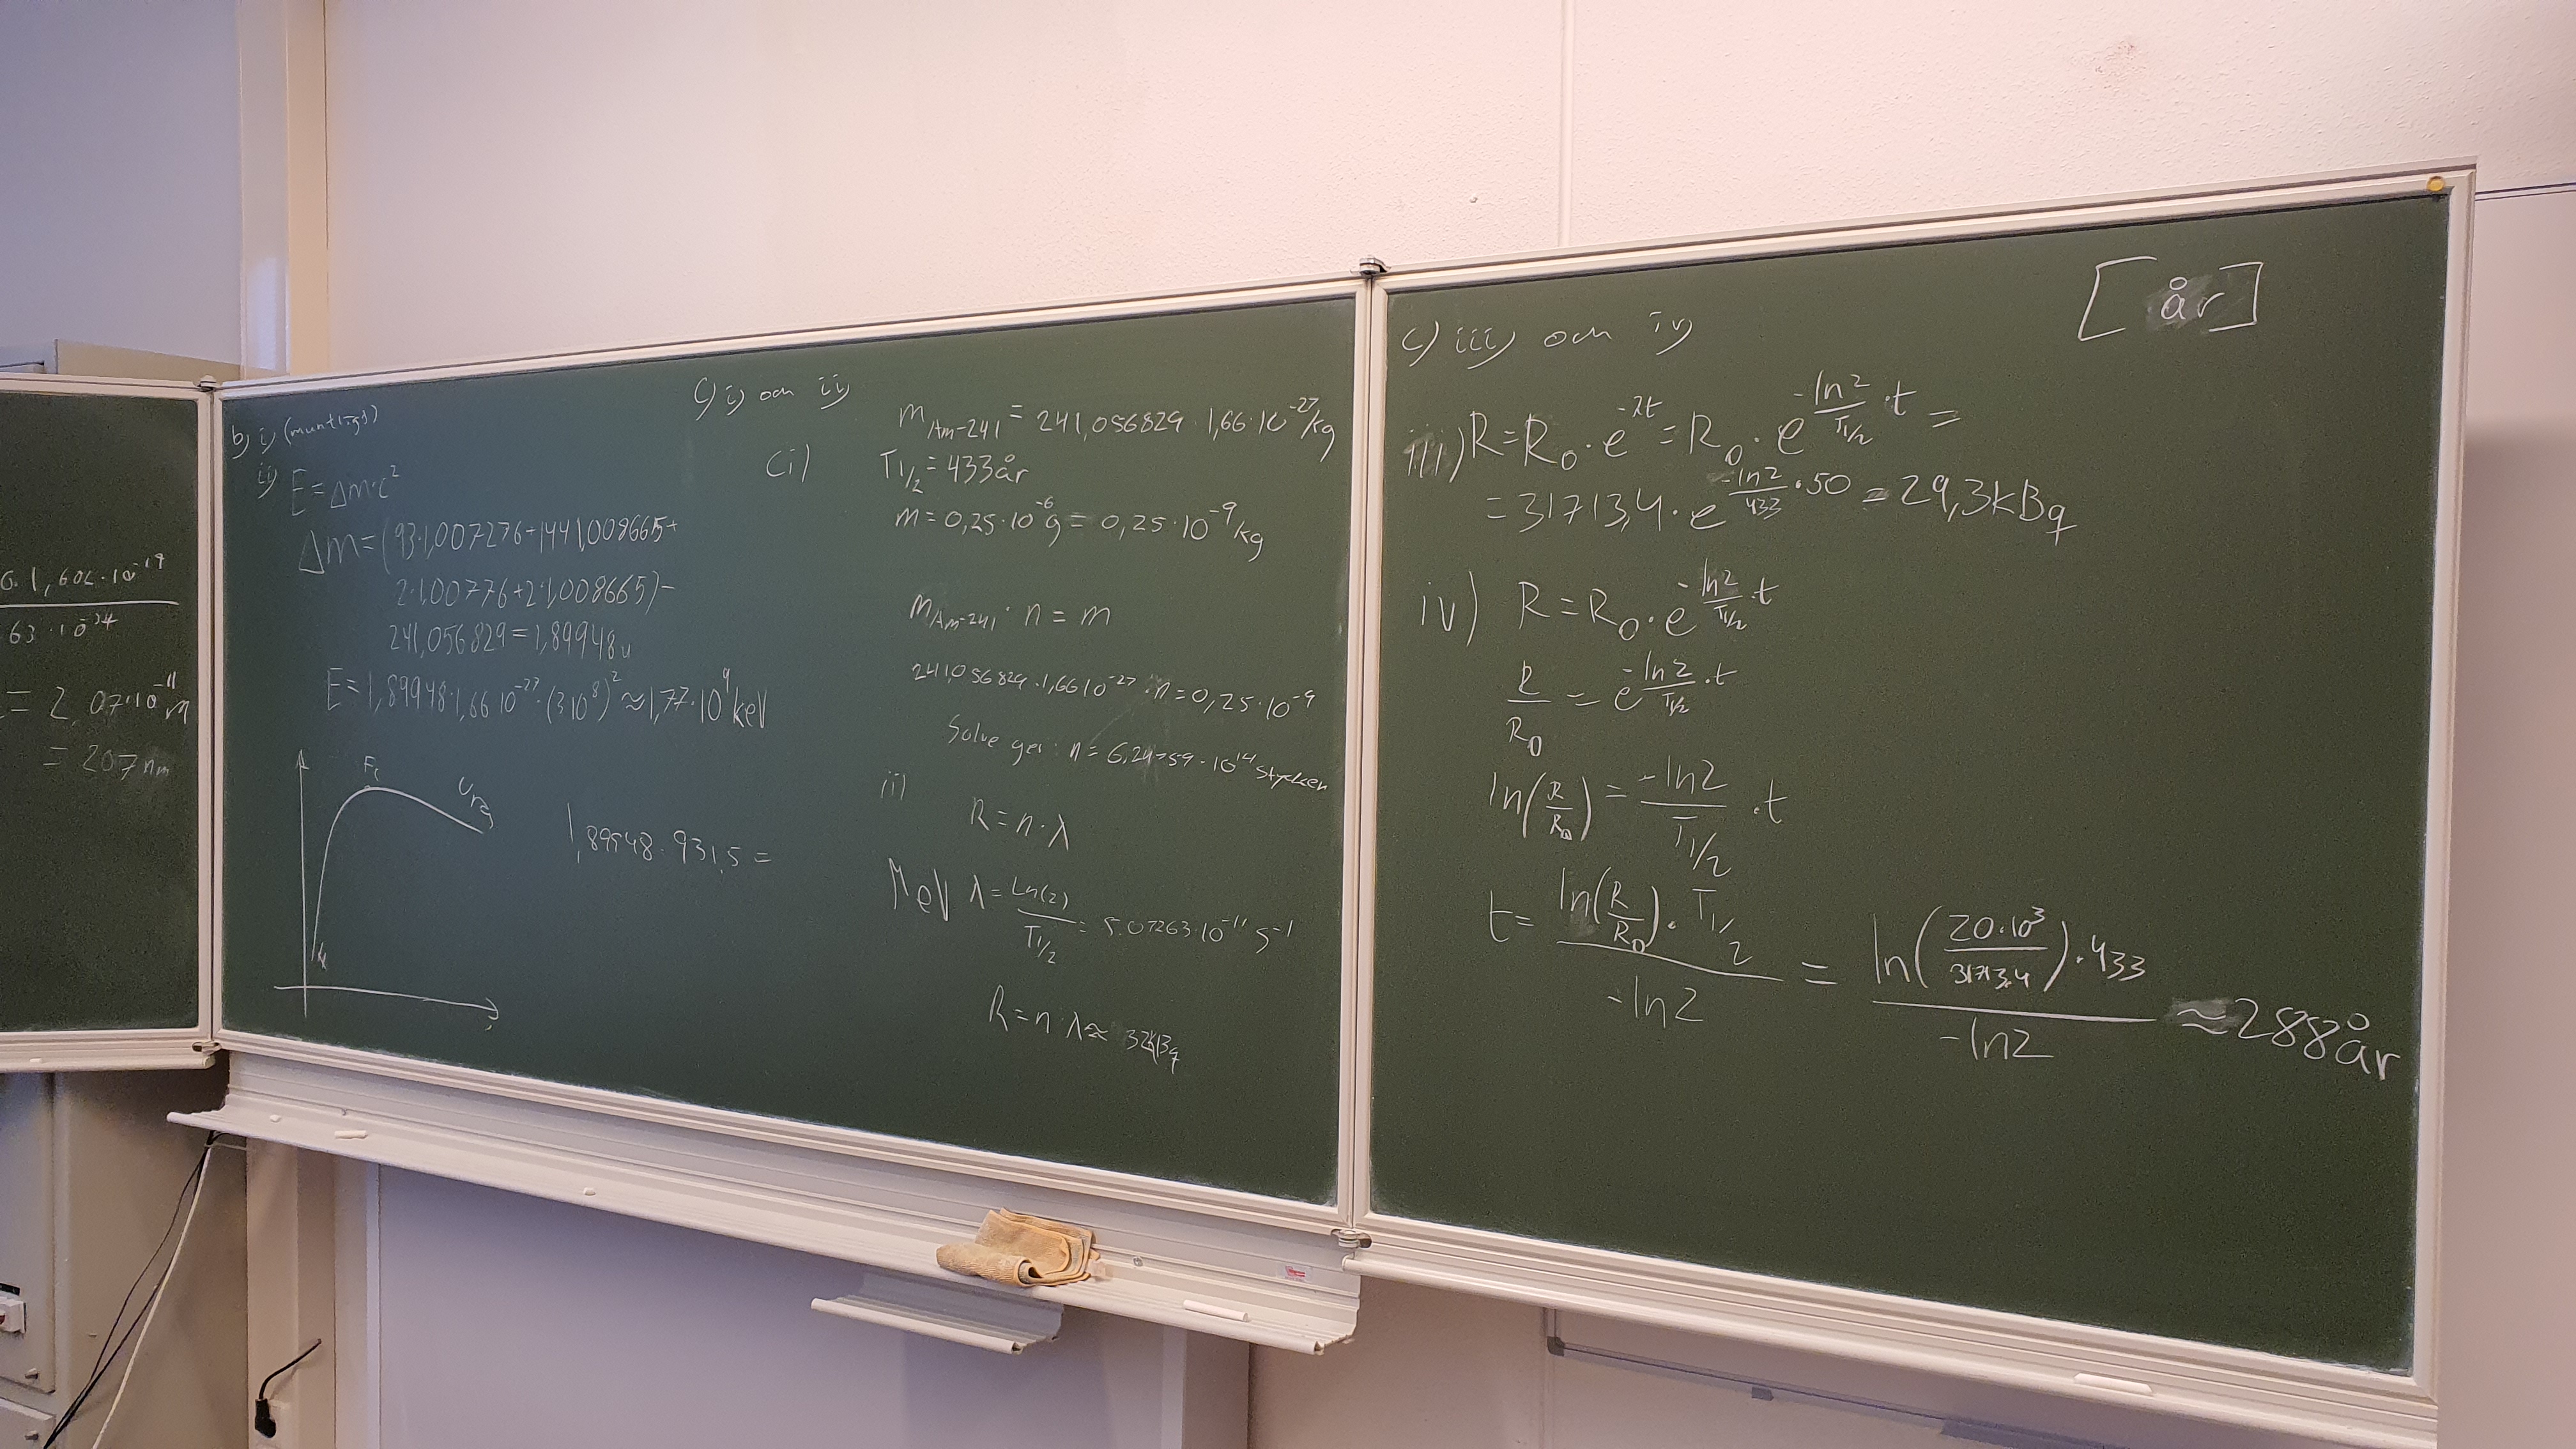 6·1,602·10^-19
63·10^-34
= 2,07·10^-11 m
= 207 nm
b) i) (muntligt)
ii) E=Δm·c²
Δm=(93·1,007276+144·1,008665+
2·1,00776+2·1,008665)-
241,056829=1,89948u
E=1,89948·1,66·10^-27·(3·10^8)²≈1,77·10^9 keV
1,89948·931,5=
MeV
c) i) och ii)
ci)
m_Am-241 = 241,056829·1,66·10^-27 kg
T1/2=433år
m=0,25·10^-6 g=0,25·10^-9 kg
m_Am-241·n=m
241,056829·1,66·10^-27·n=0,25·10^-9
Solve ger: n=6,24759·10^14 stycken
ii)
R=n·λ
λ=Ln(2)/T1/2=5.07263·10^-11 s^-1
R=n·λ≈32kBq
c) iii) och iv)
[år]
iii) R=R0·e^-λt=R0·e^(-ln2/T1/2·t)=
=31713,4·e^(-ln2/433·50)=29,3kBq
iv) R=R0·e^(-ln2/T1/2·t)
R/R0=e^(-ln2/T1/2·t)
ln(R/R0)=-ln2/T1/2·t
t=ln(R/R0)·T1/2/-ln2=ln(20·10³/31713,4)·433/-ln2≈288år